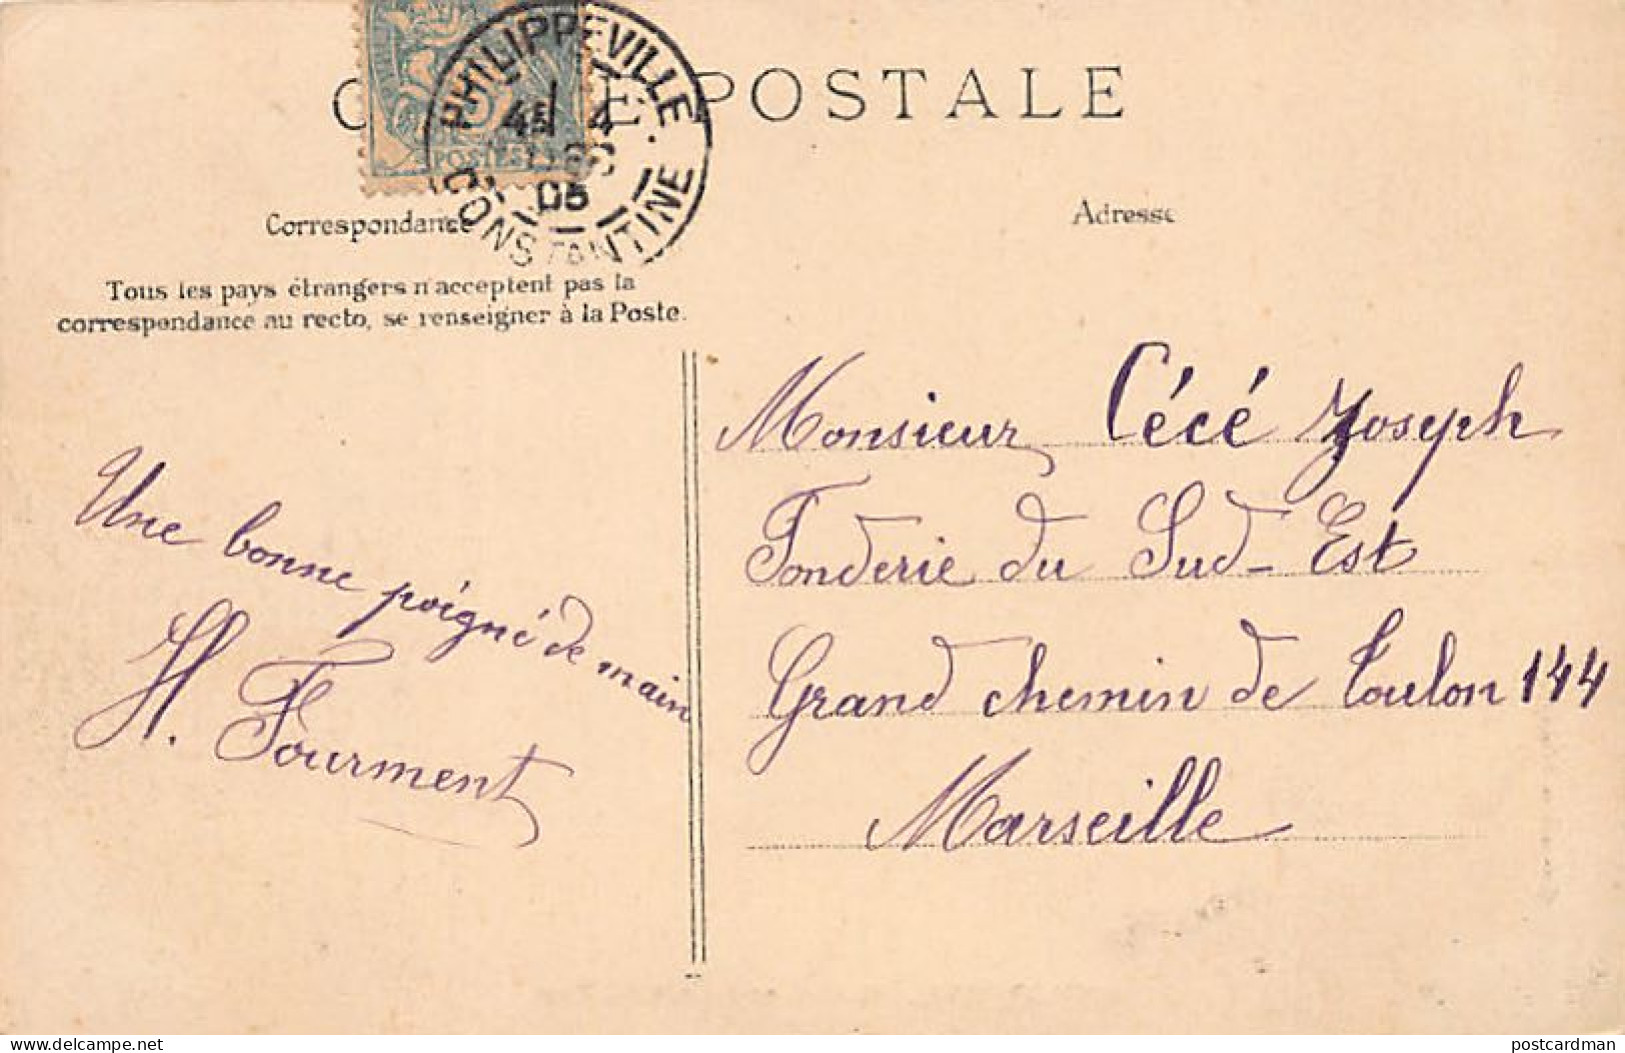 POSTALE
PHILIPPEVILLE
4
DEC
05
CONSTANTINE
POSTES
Correspondance
Adresse
Tous les pays étrangers n'acceptent pas la
correspondance au recto, se renseigner à la Poste.
Une bonne poigné de main
H. Fourment
Monsieur Cécé Joseph
Fonderie du Sud-Est
Grand chemin de Toulon 144
Marseille
www.delcampe.net
postcardman